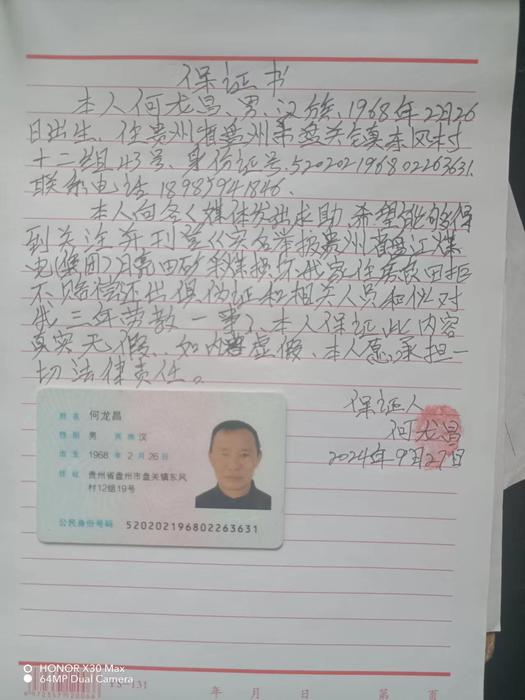 保证书
本人何龙昌、男、汉族、1968年2月26
日出生、住贵州省盘州市盘关镇东风村
十二组43号、身份证号、520202196802263631.
联系电话 18985941846.
本人向各媒体发出求助、希望能够得
到关注并刊登《实名举报贵州省盘江煤
电(集团)月亮田矿采煤损坏我家住居
不赔偿还出具伪证和相关人员
我三年劳教一事》、本人保证、此内容
真实无假、如内容虚假、本人愿承担一
切法律责任。
保证人
何龙昌
2024年9月27日
姓名 何龙昌
性别 男 民族 汉
出生 1968 年 2 月 26 日
住址 贵州省盘州市盘关镇东风
村12组19号
公民身份号码 520202196802263631
HONOR X30 Max
64MP Dual Camera
FS-131
年 月 日 第 页